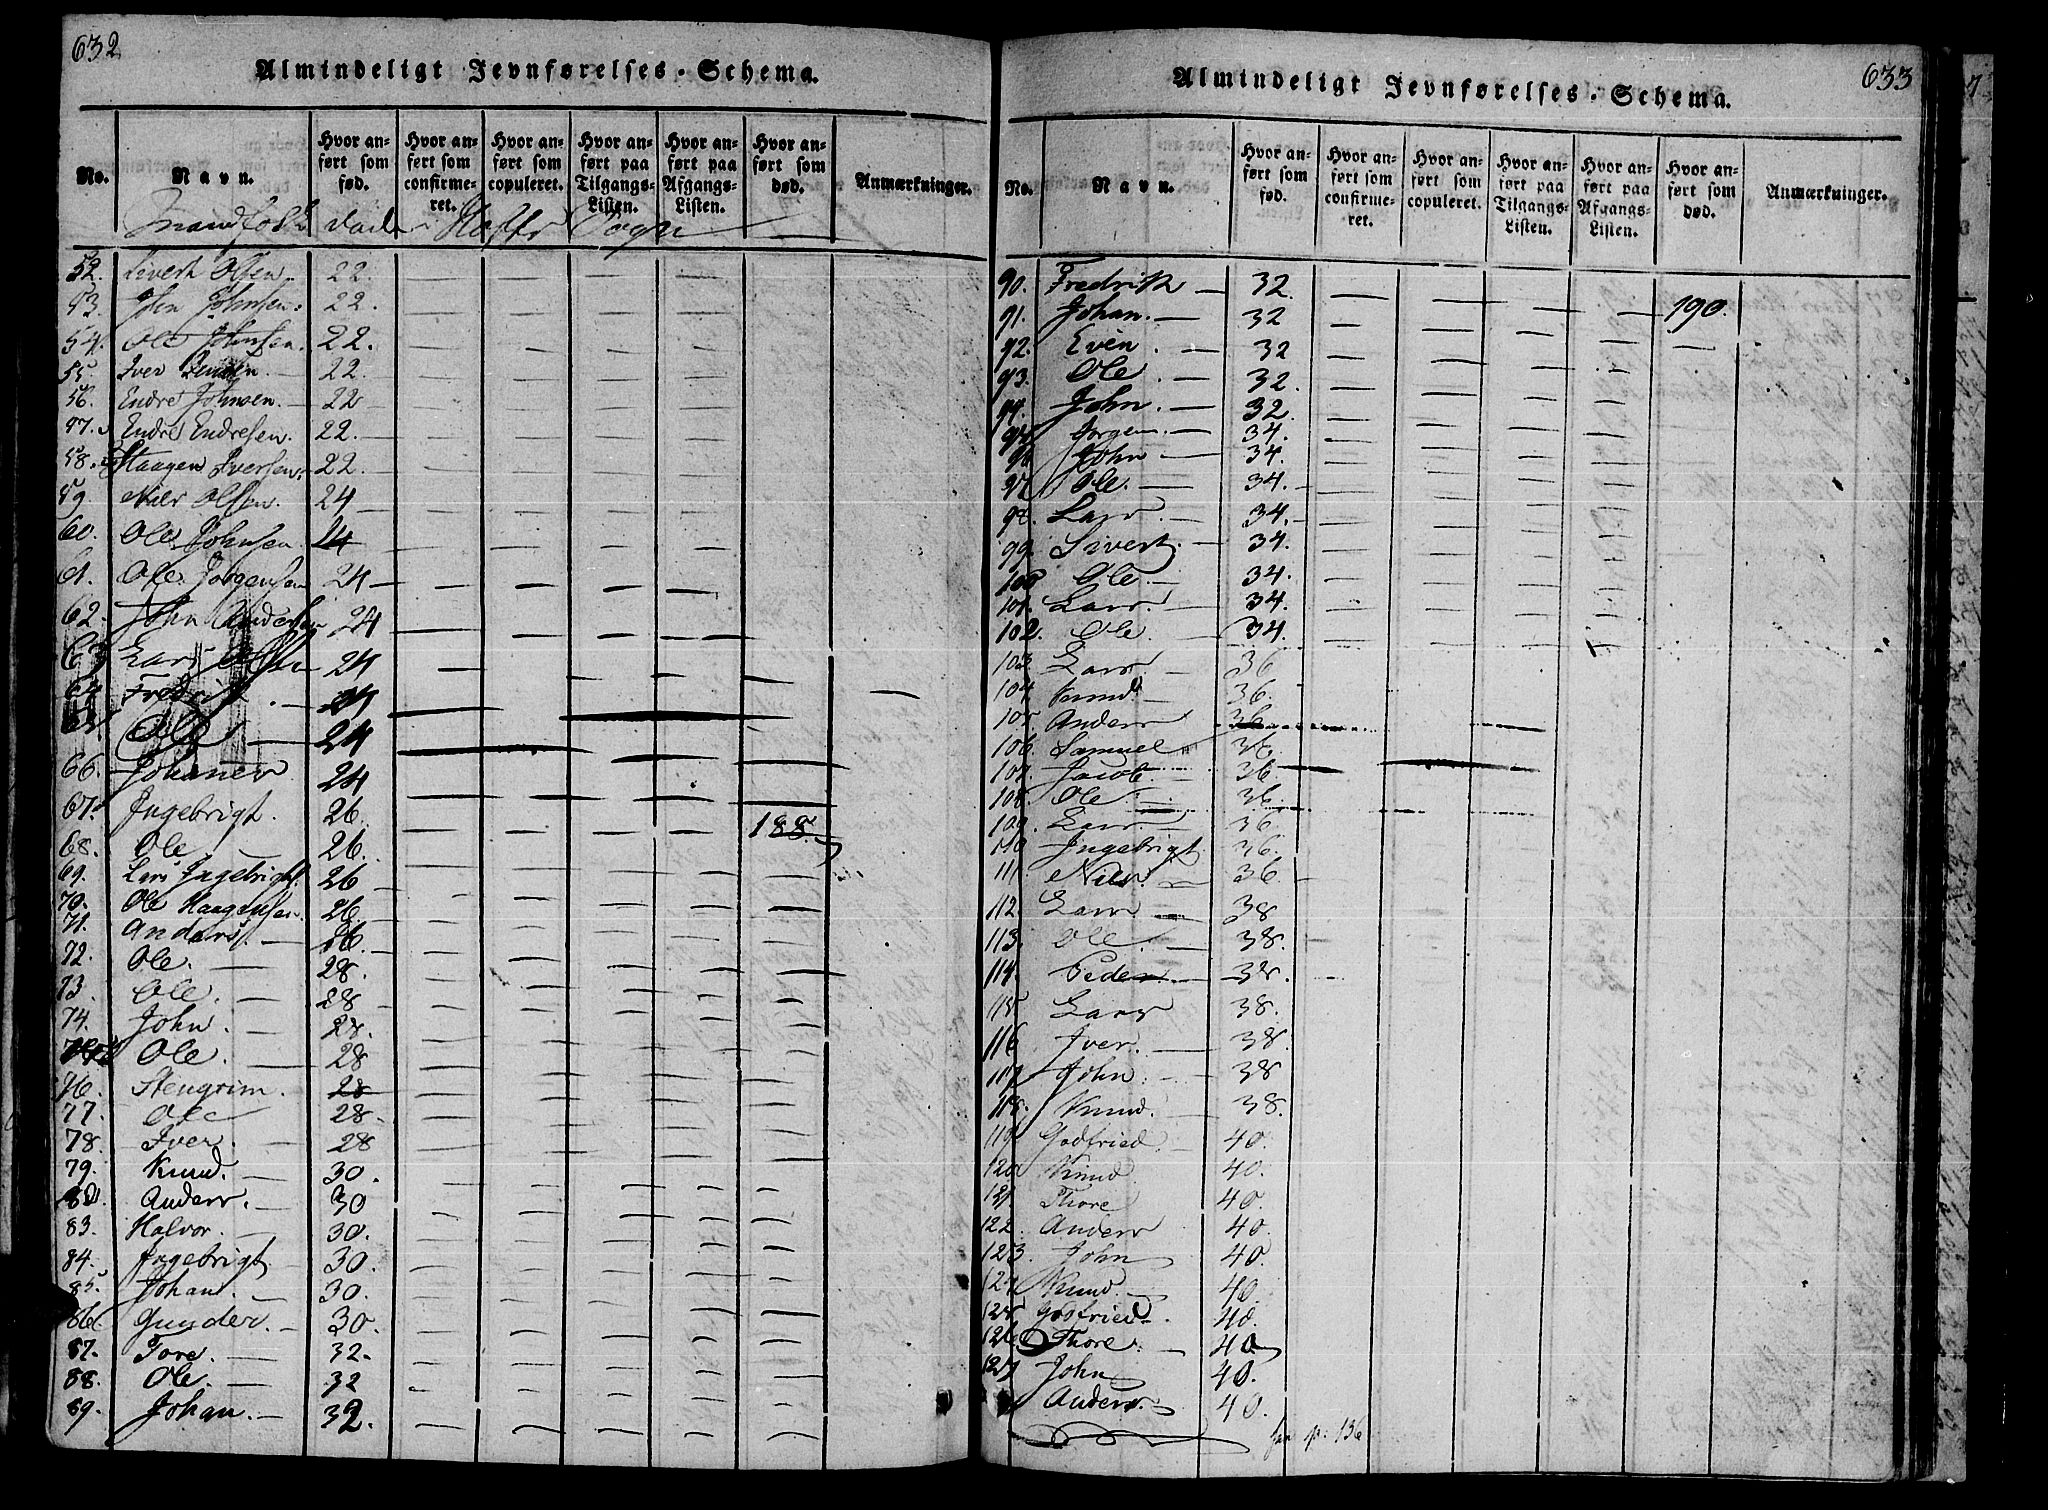 632
Almindeligt Jevnførelses-Schema.
No. Navn. Hvor anført som fød. Hvor anført som confirmeret. Hvor anført som copuleret. Hvor anført paa Tilgangs-Listen. Hvor anført paa Afgangs-Listen. Hvor anført som død. Anmærkninger.
Mandfolk Sogn
52. Sivert Olsen 22.
53. John Johnsen. 22.
54. Ole Johnsen. 22.
55. Iver Jensen 22.
56. Endre Johnsen 22
57. Endre Endresen. 22.
58. Haagen Iversen. 22.
59. Niels Olsen. 24
60. Ole Johnsen 24
61. Ole Jørgensen 24
62. John Andersen 24
63 Lars Olsen 24
64 Fredrik 24
65 Ole 24
66. Johanes 24
67. Ingebrigt. 26.
68. Ole 26. 188.
69. Lars Ingebrigts. 26
70. Ole Haagensen. 26
71. Anders. 26
72. Ole. 28.
73. Ole. 28
74. John. 28.
75 Ole. 28
76. Stengrim. 28
77. Ole 28.
78. Iver. 28
79. Knud. 30.
80. Anders. 30
83. Halvor. 30.
84. Ingebrigt 30.
85. Johan. 30.
86 Gunder. 30.
87. Tore. 32.
88. Ole. 32
89. Johan. 32.
633
Almindeligt Jevnførelses-Schema.
No. Navn. Hvor anført som fød. Hvor anført som confirmeret. Hvor anført som copuleret. Hvor anført paa Tilgangs-Listen. Hvor anført paa Afgangs-Listen. Hvor anført som død. Anmærkninger.
90. Fredrik 32.
91. Johan. 32 190.
92. Even 32
93. Ole 32.
94. John. 32.
95 Jørgen 34.
96 John 34.
97 Ole. 34.
98. Lars 34.
99 Sivert. 34.
100 Ole 34.
101. Lars. 34.
102. Ole 34.
103 Lars 36
104. Knud 36.
105 Anders 36
106. Samuel 36.
107. Jacob. 36.
108. Ole 36.
109. Lars 36.
110 Ingebrigt 36.
111 Niels. 36
112. Lars 38
113. Ole 38.
114. Peder 38.
115 Lars 38.
116 Iver. 38.
117 John. 38
118. Knud. 38.
119 Godfried 40.
120 Knud 40.
121. Thore 40.
122 Anders 40.
123. John 40.
124 Knud 40.
125 Godfried 40.
126 Thore. 40
127 John 40.
Anders. 40.
p. 136